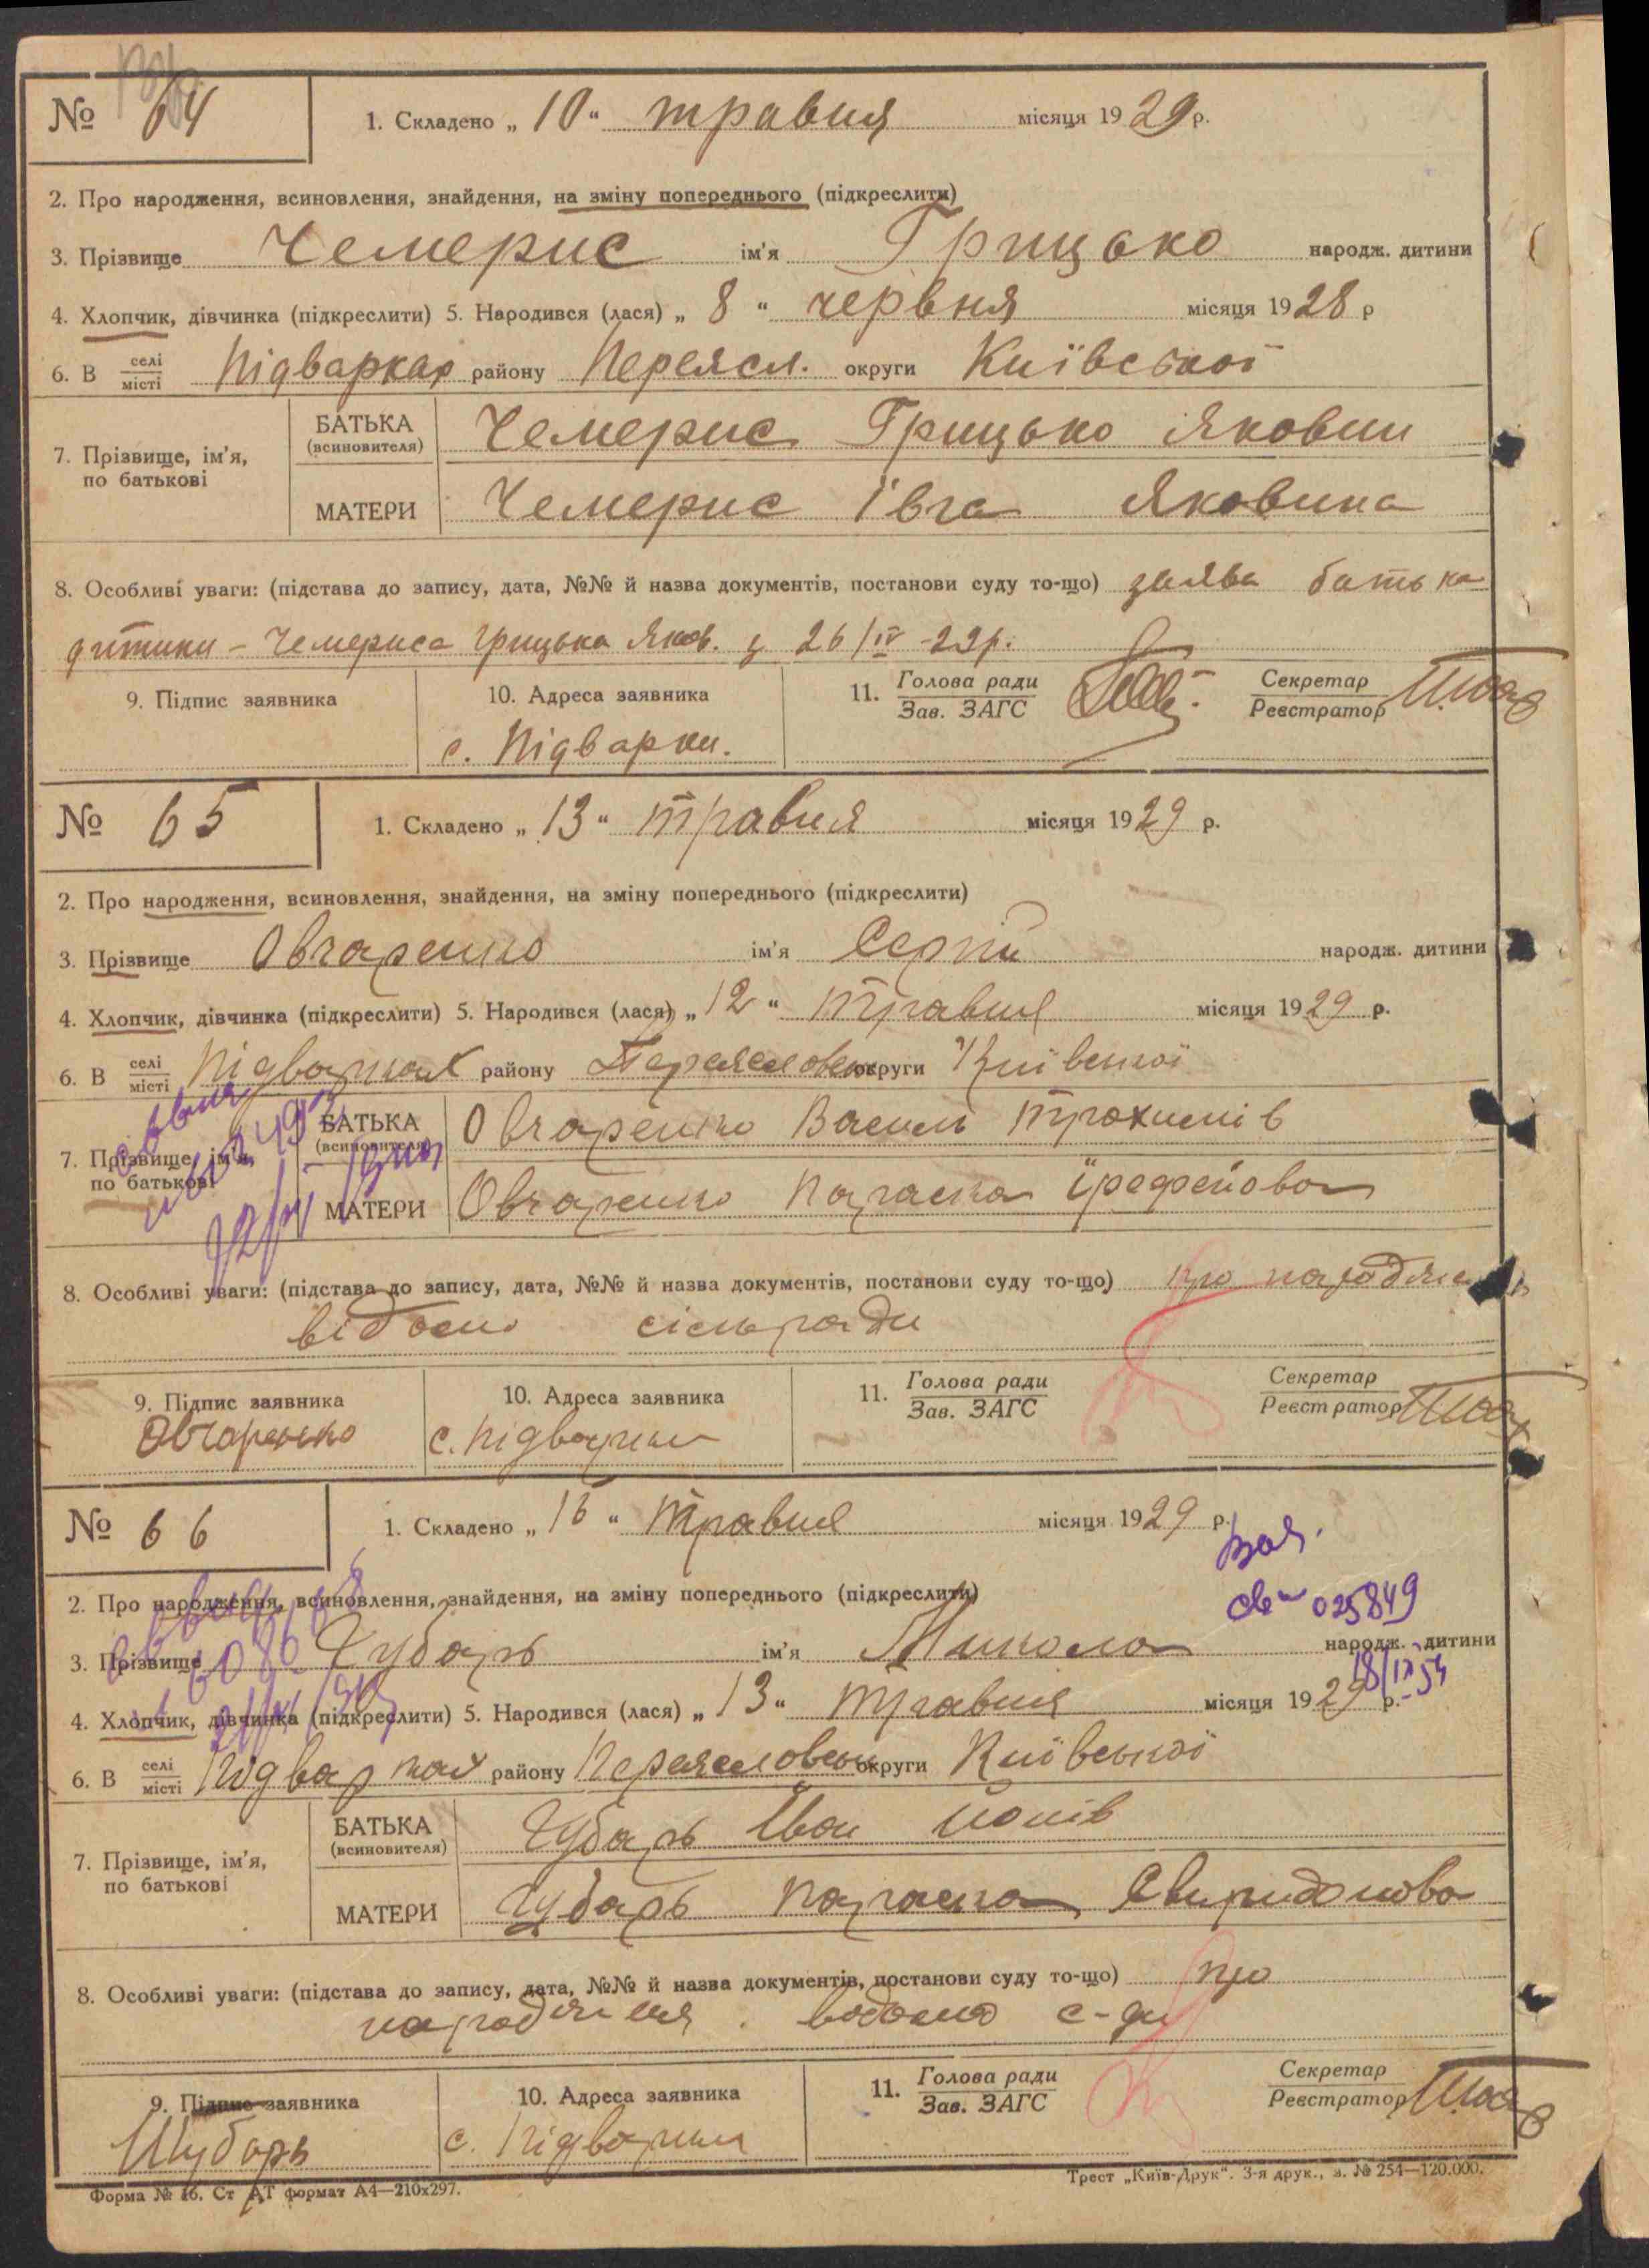 № 64
1. Складено „ 10 “ травня місяця 1929 р.
2. Про народження, всиновлення, знайдення, на зміну попереднього (підкреслити)
3. Прізвище Чемерис ім'я Грицько народж. дитини
4. Хлопчик, дівчинка (підкреслити) 5. Народився (лася) „ 8 “ червня місяця 1928 р
6. В селі місті Підварках району Переясл. округи Київської
7. Прізвище, ім'я, по батькові
БАТЬКА (всиновителя) Чемерис Грицько Якович
МАТЕРИ Чемерис Івга Яковина
8. Особливі уваги: (підстава до запису, дата, №№ й назва документів, постанови суду то-що) заява батька
дитини – Чемериса Грицька Яков. з 26/IV -29р.
9. Підпис заявника 10. Адреса заявника 11. Голова ради Зав. ЗАГС Секретар Реєстратор
с. Підварки.
№ 65
1. Складено „ 13 “ травня місяця 1929 р.
2. Про народження, всиновлення, знайдення, на зміну попереднього (підкреслити)
3. Прізвище Овчаренко ім'я Сергій народж. дитини
4. Хлопчик, дівчинка (підкреслити) 5. Народився (лася) „ 12 “ травня місяця 1929 р.
6. В селі місті Підварках району Переясловськ округи Київської
7. Прізвище, ім'я, по батькові
БАТЬКА (всиновителя) Овчаренко Василь Трохимів
МАТЕРИ Овчаренко Параска
8. Особливі уваги: (підстава до запису, дата, №№ й назва документів, постанови суду то-що) про народжен
відомо сільради
9. Підпис заявника 10. Адреса заявника 11. Голова ради Зав. ЗАГС Секретар Реєстратор
Овчаренко с. Підварки
№ 66
1. Складено „ 16 “ травня місяця 1929 р.
2. Про народження, всиновлення, знайдення, на зміну попереднього (підкреслити)
025849
3. Прізвище Чубарь ім'я Микола народж. дитини
18/IX-54
4. Хлопчик, дівчинка (підкреслити) 5. Народився (лася) „ 13 “ травня місяця 1929 р.
6. В селі місті Підварках району Переясловськ округи Київської
7. Прізвище, ім'я, по батькові
БАТЬКА (всиновителя) Чубарь Іван Йонів
МАТЕРИ Чубарь Параска Свиридонова
8. Особливі уваги: (підстава до запису, дата, №№ й назва документів, постанови суду то-що) про
народження відомо с-ди
9. Підпис заявника 10. Адреса заявника 11. Голова ради Зав. ЗАГС Секретар Реєстратор
Чубарь с. Підварки
Форма № 16. Ст АТ формат А4—210х297.
Трест „Київ-Друк“. 3-я друк., з. № 254—120.000.